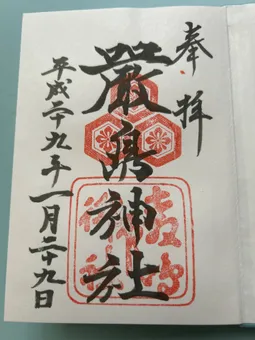 奉拝
厳島神社
平成二十九年一月二十九日